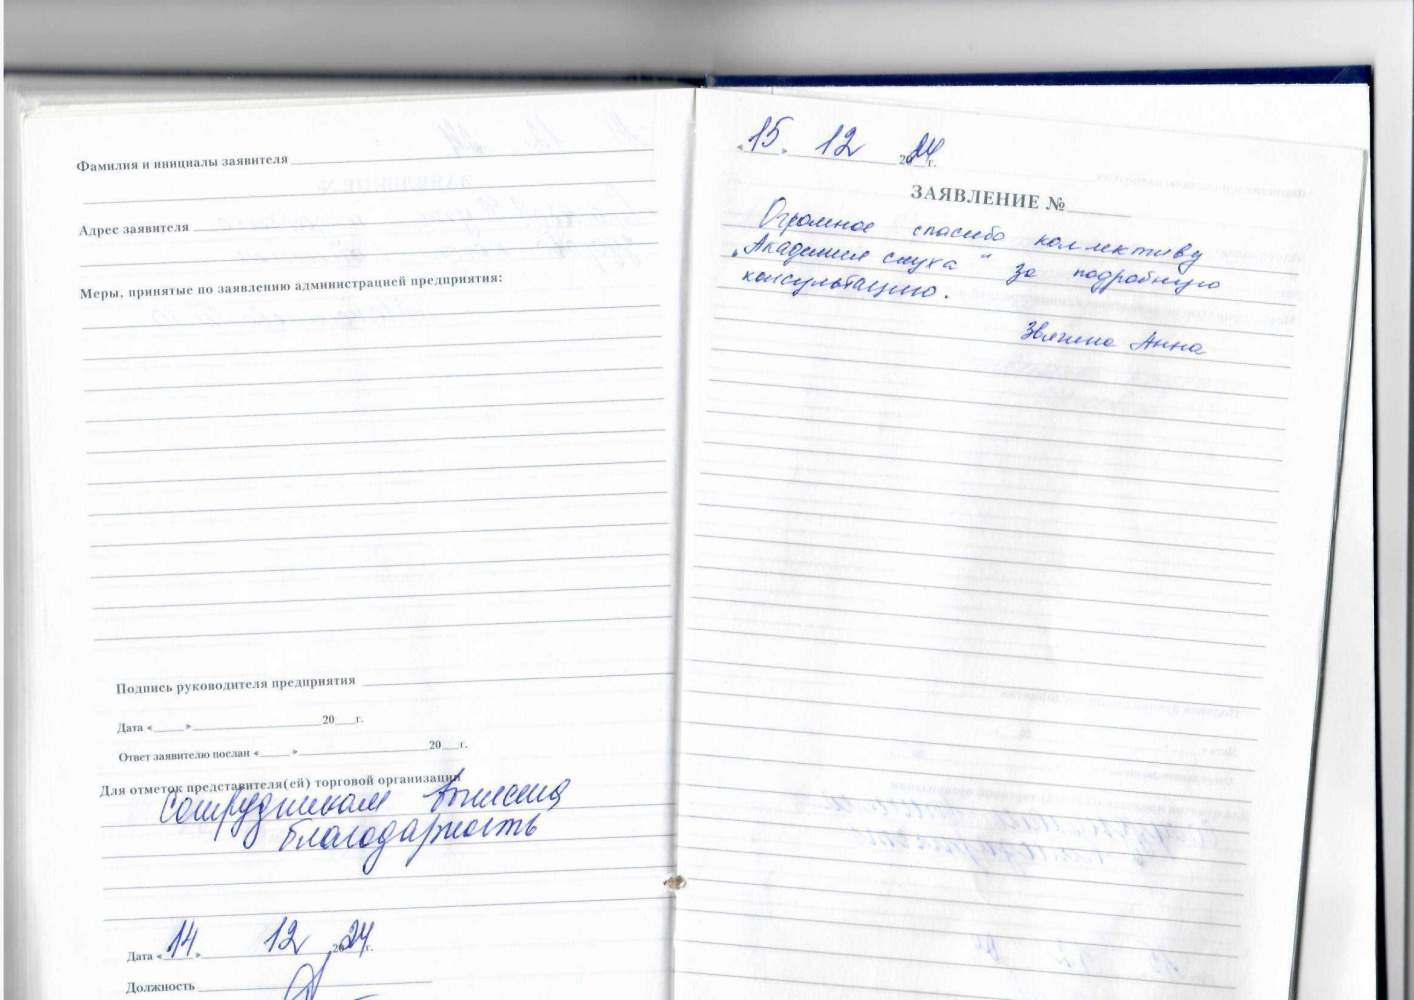 Фамилия и инициалы заявителя
Адрес заявителя
Меры, принятые по заявлению администрацией предприятия:
Подпись руководителя предприятия
Дата « » 20 г.
Ответ заявителю послан « » 20 г.
Для отметок представителя(ей) торговой организации
Сотрудникам вынесена
благодарность
Дата «14» 12 2024 г.
Должность
«15» 12 2024 г.
ЗАЯВЛЕНИЕ №
Огромное спасибо коллективу
„Академия слуха“ за подробную
консультацию.
Анна